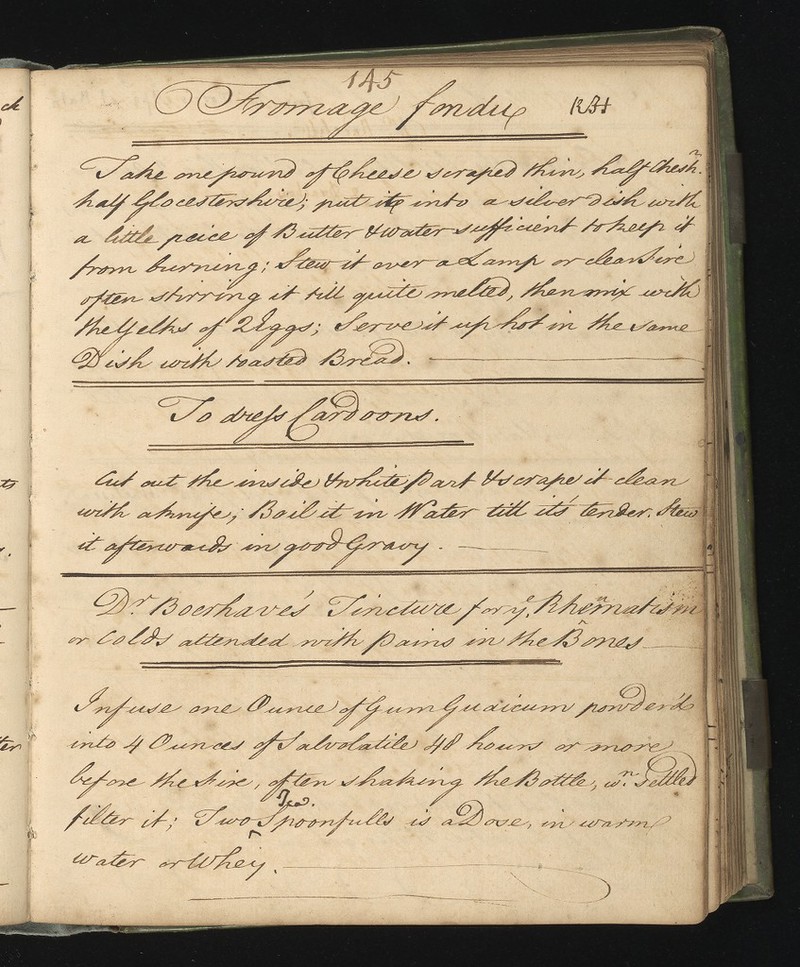 145
Fromage fondu
Take one pound of Cheese scraped thin, half Chesh.n
half Glocestershire; put it into a silver dish with
a little peice of Butter & water sufficient to keep it
from burning; Stew it over a Lamp or clear Fire
often stirring it till quite melted, then mix with
the Yelks of 2 Eggs; Serve it up hot in the same
Dish with toasted Bread.
To dress Cardoons.
Cut out the inside & white part & scrape it clean
with a knife; Boil it in Water till its tender. Stew
it afterwards in good Gravy.
Dr. Boerhave's Tincture for ye. Rhematism
or Colds attended with Pains in the Bones
Infuse one Ounce of Gum Guaicum powder'd
into 4 Ounces of Salvolatile 48 hours or more
before the Fire, often shaking the Bottle, wn. settled
filter it; Two Tea Spoonfulls is a Dose, in warm
water or Whey.